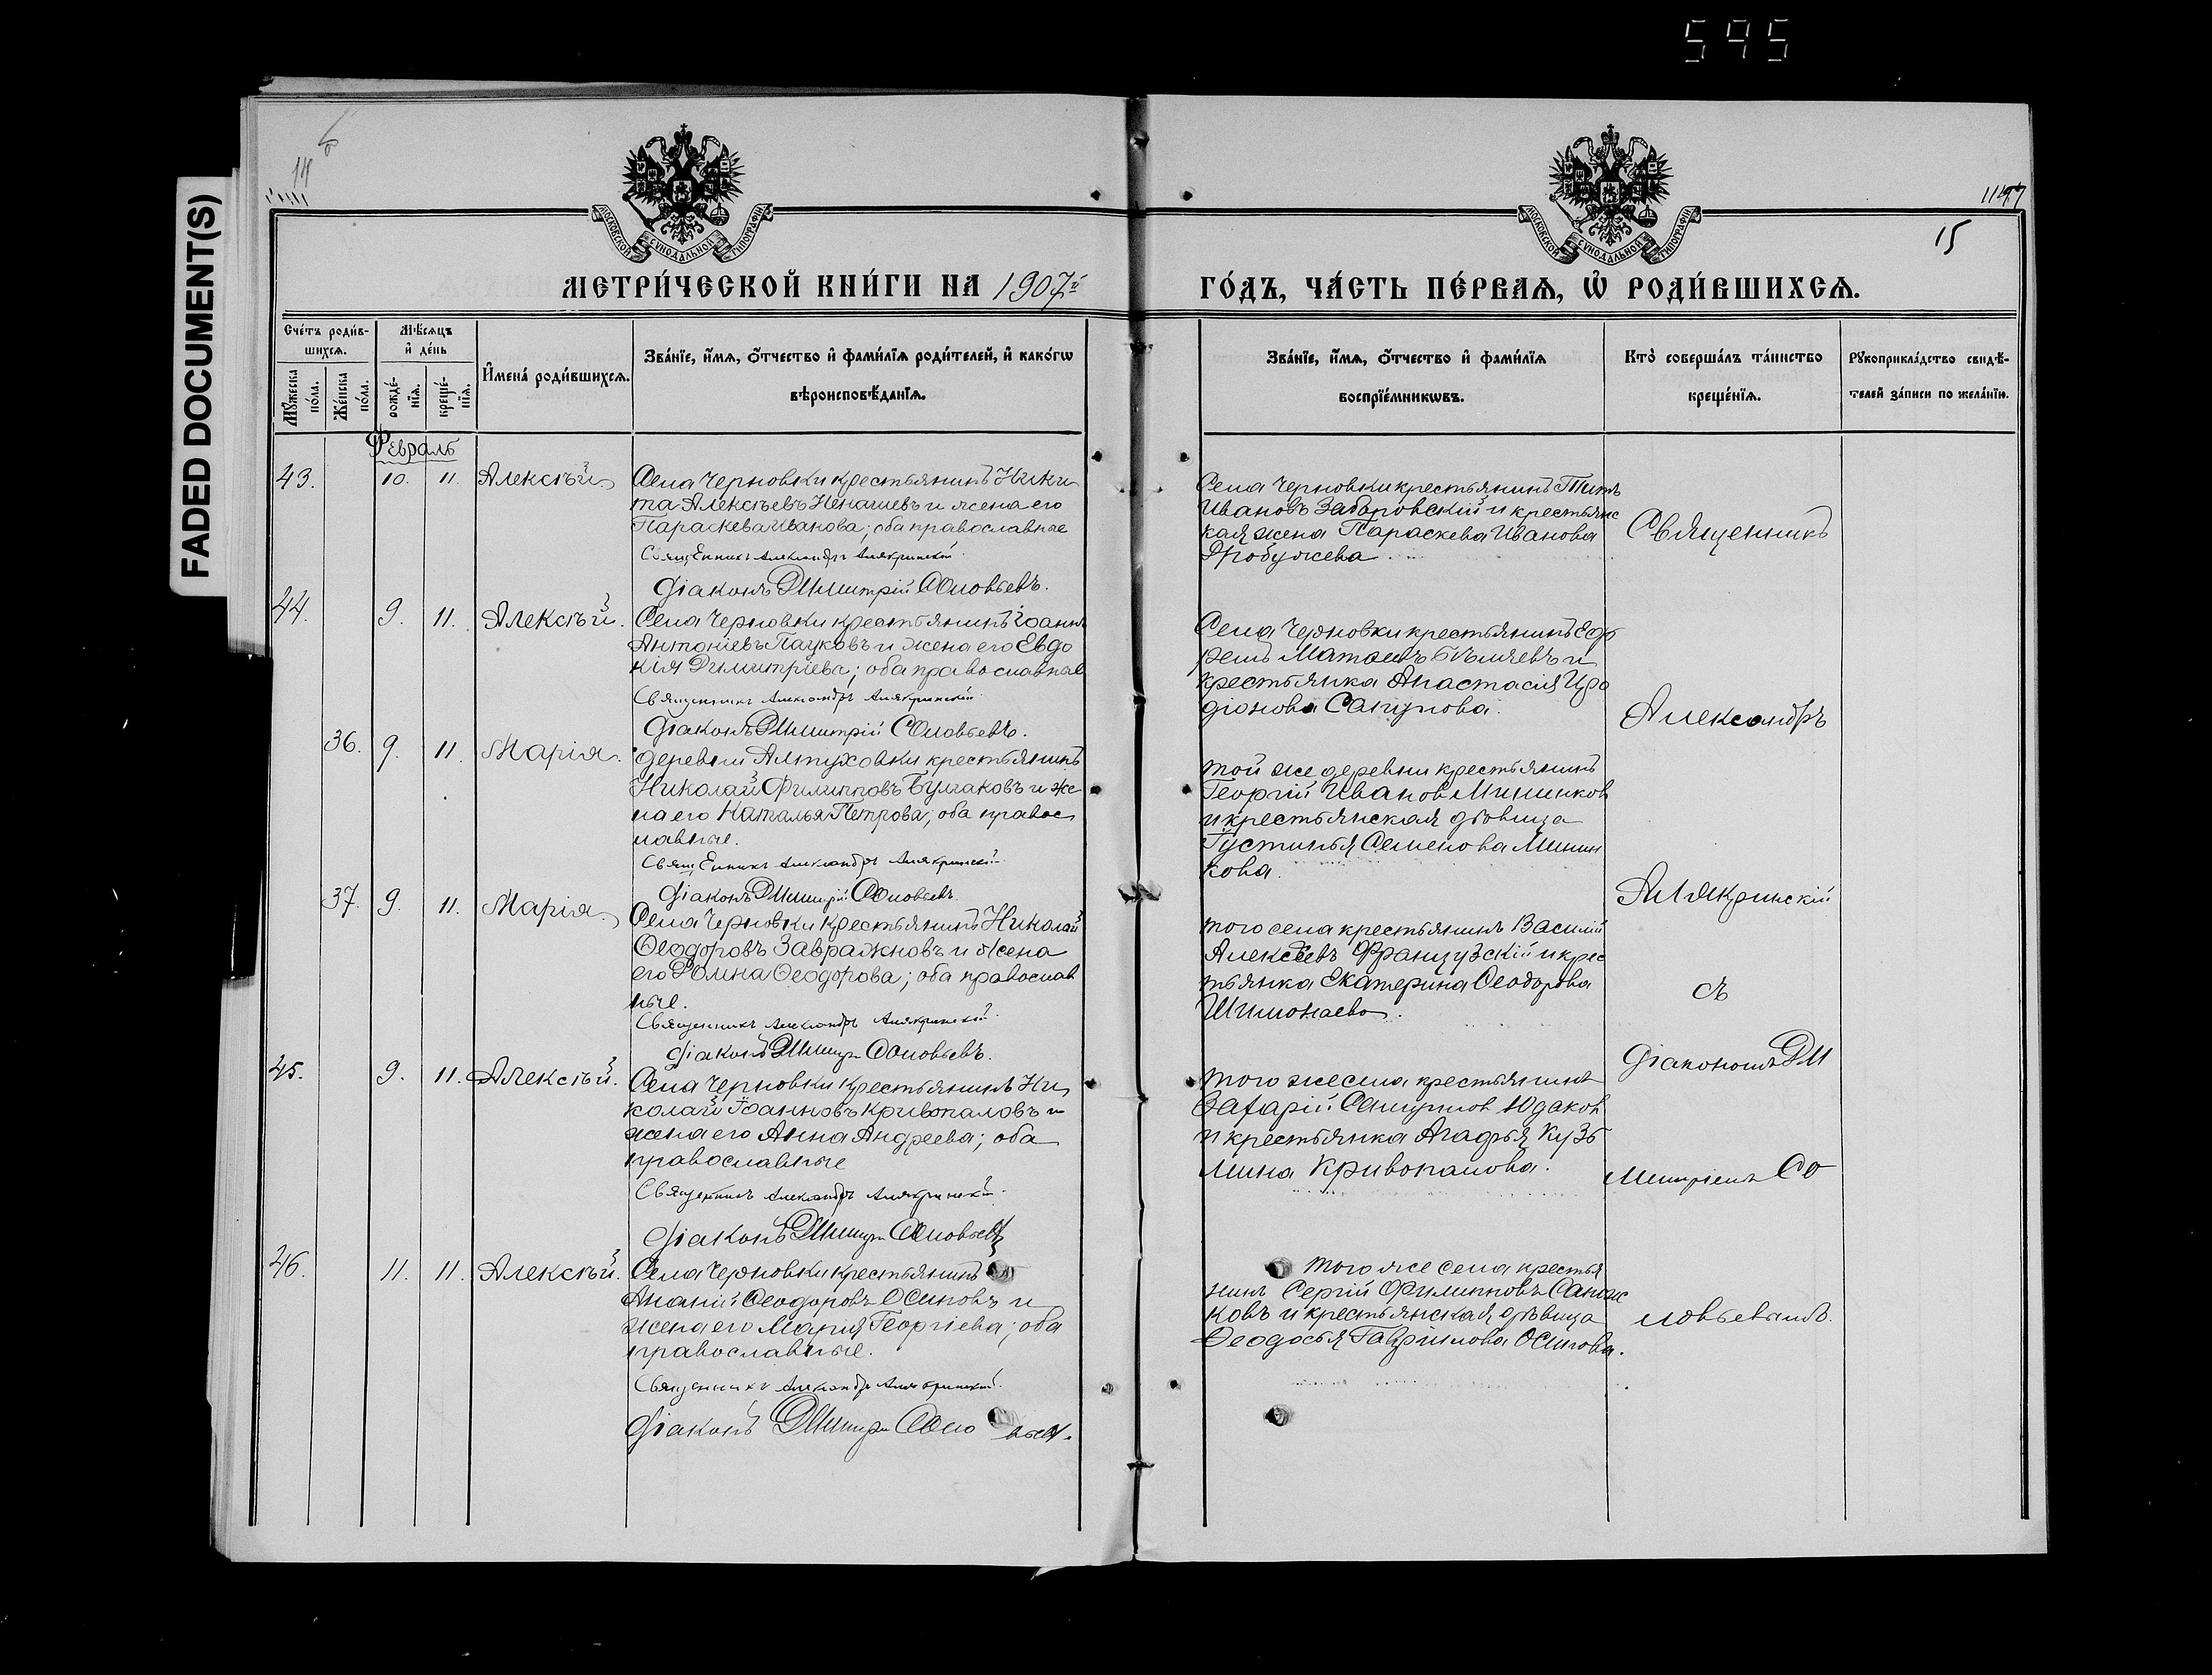 595
FADED DOCUMENT(S)
14
1147
15
МОСКОВСКОЙ СѴНОДАЛЬНОЙ ТИПОГРАФІИ
МОСКОВСКОЙ СѴНОДАЛЬНОЙ ТИПОГРАФІИ
МЕТРИ́ЧЕСКОЙ КНИ́ГИ НА 1907й
ГО́ДЪ, ЧА́СТЬ ПЕ́РВАѦ, Ѡ҆ РОДИ́ВШИХСѦ.
Сче́тъ роди́в-
шихсѧ.
Мꙋ́жеска по́ла.
Же́нска по́ла.
Мѣ́сѧцъ
и҆ де́нь
рожде́-нїѧ.
креще́-нїѧ.
И҆мена̀ роди́вшихсѧ.
Зва́нїе, и҆́мѧ, ѻ҆́тчество и҆ фами́лїѧ роди́телей, и҆ како́гѡ
вѣроисповѣ́данїѧ.
Зва́нїе, и҆́мѧ, ѻ҆́тчество и҆ фами́лїѧ
воспрїе́мникѡвъ.
Кто̀ соверша́лъ та́инство
креще́нїѧ.
Рꙋкоприкла́дство свидѣ́-
телей за́писи по жела́нїю.
Февраль
43. 10. 11 Алексѣй
Села Черновки крестьянинъ Ники
та Алексѣевъ Ненашевъ и жена его
Параскева Иванова; оба православные
Священникъ Александръ Алякринскій
Діаконъ Димитрій Соловьевъ.
Села Черновки крестьянинъ Титъ
Ивановъ Заборовскій и крестьянс
кая жена Параскева Иванова
44. 9. 11. Алексѣй.
Села Черновки крестьянинъ Іоаннъ
Антоніевъ Пауковъ и жена его Евдо
кія Димитріева; оба православные
Священникъ Александръ Алякринскій
Діаконъ Димитрій Соловьевъ.
Села Черновки крестьянинъ Еф
ремъ
крестьянка Анастасія Иро
діонова Сапунова.
36. 9. 11. Марія.
деревни Алтуховки крестьянинъ
Николай Филипповъ Булгаковъ и же
на его Наталья Петрова; оба правос
лавные.
Священникъ Александръ Алякринскій
Діаконъ Димитрій Соловьевъ.
той же деревни крестьянинъ
Георгій Иванов Мининков
и крестьянская дѣвица
Іустинья Семенова Минин
кова.
37. 9. 11. Марія.
Села Черновки крестьянинъ Николай
Ѳеодоровъ Завражновъ и жена
его Домна Ѳеодорова; оба православ
ные.
Священникъ Александръ Алякринскій
Діаконъ Димитрій Соловьевъ.
того села крестьянинъ Василій
Алексѣевъ Французскій и крес
тьянка Екатерина Ѳеодорова
45. 9. 11. Алексѣй.
Села Черновки крестьянинъ Ни
колай Іоанновъ Кривопаловъ и
жена его Анна Андреева; оба
православные
Священникъ Александръ Алякринскій
Діаконъ Димитрій Соловьевъ
того же села крестьянинъ
Захарій Самуилов Юдаков
и крестьянка Агафья Кузь
мина Кривопалова.
46. 11. 11. Алексѣй.
Села Черновки крестьянинъ
Ананій Ѳеодоровъ Осиповъ и
жена его Мария Георгіева; оба
православные.
Священникъ Александръ Алякринскій.
Діаконъ Димитрій Соловьевъ.
того же села крестья
нинъ Сергій Филипповъ Сапож
ковъ и крестьянская дѣвица
Ѳеодосья Гавриилова Осипова.
Священникъ
Александръ
Алякринскій
съ
діакономъ Ди
митріемъ Со
ловьевымъ.